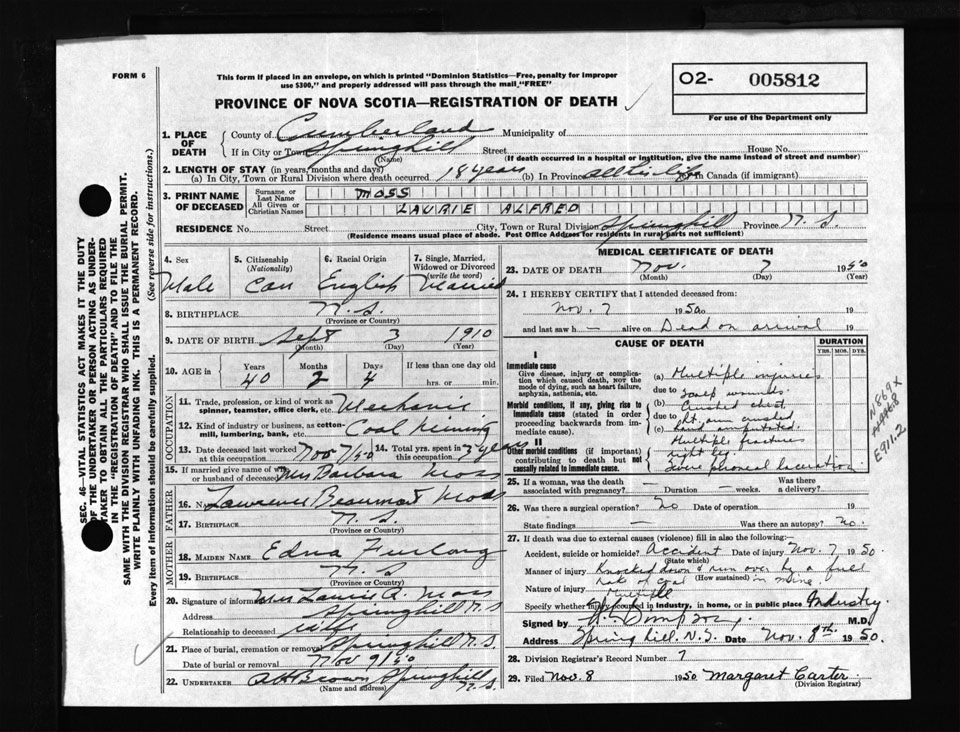 FORM 6
This form if placed in an envelope, on which is printed "Dominion Statistics—Free, penalty for improper
use $300," and properly addressed will pass through the mail "FREE"
PROVINCE OF NOVA SCOTIA—REGISTRATION OF DEATH
O2- 005812
For use of the Department only
SEC. 46—VITAL STATISTICS ACT MAKES IT THE DUTY
OF THE UNDERTAKER OR PERSON ACTING AS UNDER-
TAKER TO OBTAIN ALL THE PARTICULARS REQUIRED
IN THE "REGISTRATION OF DEATH" AND TO FILE THE
SAME WITH THE DIVISION REGISTRAR WHO SHALL ISSUE THE BURIAL PERMIT.
WRITE PLAINLY WITH UNFADING INK. THIS IS A PERMANENT RECORD.
Every item of information should be carefully supplied. (See reverse side for instructions.)
1. PLACE OF DEATH
County of Cumberland Municipality of
If in City or Town Springhill Street House No.
(Name) (If death occurred in a hospital or institution, give the name instead of street and number)
2. LENGTH OF STAY (in years, months and days)
(a) In City, Town or Rural Division where death occurred 18 years (b) In Province all his life (c) In Canada (if immigrant)
3. PRINT NAME OF DECEASED
Surname or Last Name MOSS
All Given or Christian Names LAURIE ALFRED
RESIDENCE No. Street City, Town or Rural Division Springhill Province N. S.
(Residence means usual place of abode. Post Office Address for residents in rural parts not sufficient)
4. Sex Male
5. Citizenship (Nationality) Can
6. Racial Origin English
7. Single, Married, Widowed or Divorced (write the word) Married
8. BIRTHPLACE N. S.
(Province or Country)
9. DATE OF BIRTH Sept 3 1910
(Month) (Day) (Year)
10. AGE in Years Months Days If less than one day old
40 2 4 hrs. or min.
OCCUPATION
11. Trade, profession, or kind of work as spinner, teamster, office clerk, etc. Mechanic
12. Kind of industry or business, as cotton-mill, lumbering, bank, etc. Coal Mining
13. Date deceased last worked at this occupation Nov 7/50
14. Total yrs. spent in this occupation 3 years
15. If married give name of wife or husband of deceased Mrs Barbara Moss
FATHER
16. Name Lawrence Beaumont Moss
17. BIRTHPLACE N. S.
(Province or Country)
MOTHER
18. MAIDEN NAME Edna Furlong
19. BIRTHPLACE N. S
(Province or Country)
20. Signature of informant Mrs Laurie A. Moss
Address Springhill N. S
Relationship to deceased wife
21. Place of burial, cremation or removal Springhill N. S.
Date of burial or removal Nov 9/50
22. UNDERTAKER A H Brown Springhill N. S.
(Name and address)
MEDICAL CERTIFICATE OF DEATH
23. DATE OF DEATH Nov. 7 1950
(Month) (Day) (Year)
24. I HEREBY CERTIFY that I attended deceased from:
Nov. 7 1950 to 19
and last saw h — alive on Dead on arrival 19
CAUSE OF DEATH
DURATION
YRS. MOS. DYS.
I
Immediate cause
Give disease, injury or complication which caused death, NOT the mode of dying, such as heart failure, asphyxia, asthenia, etc.
(a) Multiple injuries
due to Scalp wounds
Morbid conditions, if any, giving rise to immediate cause (stated in order proceeding backwards from immediate cause).
(b) Crushed chest
due to Rt. arm crushed
(c) hand amputated.
II
Other morbid conditions (if important) contributing to death but not causally related to immediate cause.
Multiple fractures
right leg.
Severe laceration
N869X
E911.2
25. If a woman, was the death associated with pregnancy? — Duration — weeks. Was there a delivery?
26. Was there a surgical operation? No Date of operation 19
State findings — Was there an autopsy? No.
27. If death was due to external causes (violence) fill in also the following:
Accident, suicide or homicide? Accident Date of injury Nov. 7 1950
(State which)
Manner of injury Knocked down & run over by a full
rake of coal (How sustained) in mine.
Nature of injury Multiple
Specify whether injury occurred in industry, in home, or in public place Industry.
Signed by M.D.
Address Springhill, N.S. Date Nov. 8th 1950.
28. Division Registrar's Record Number 7
29. Filed Nov. 8 1950 Margaret Carter
(Division Registrar)